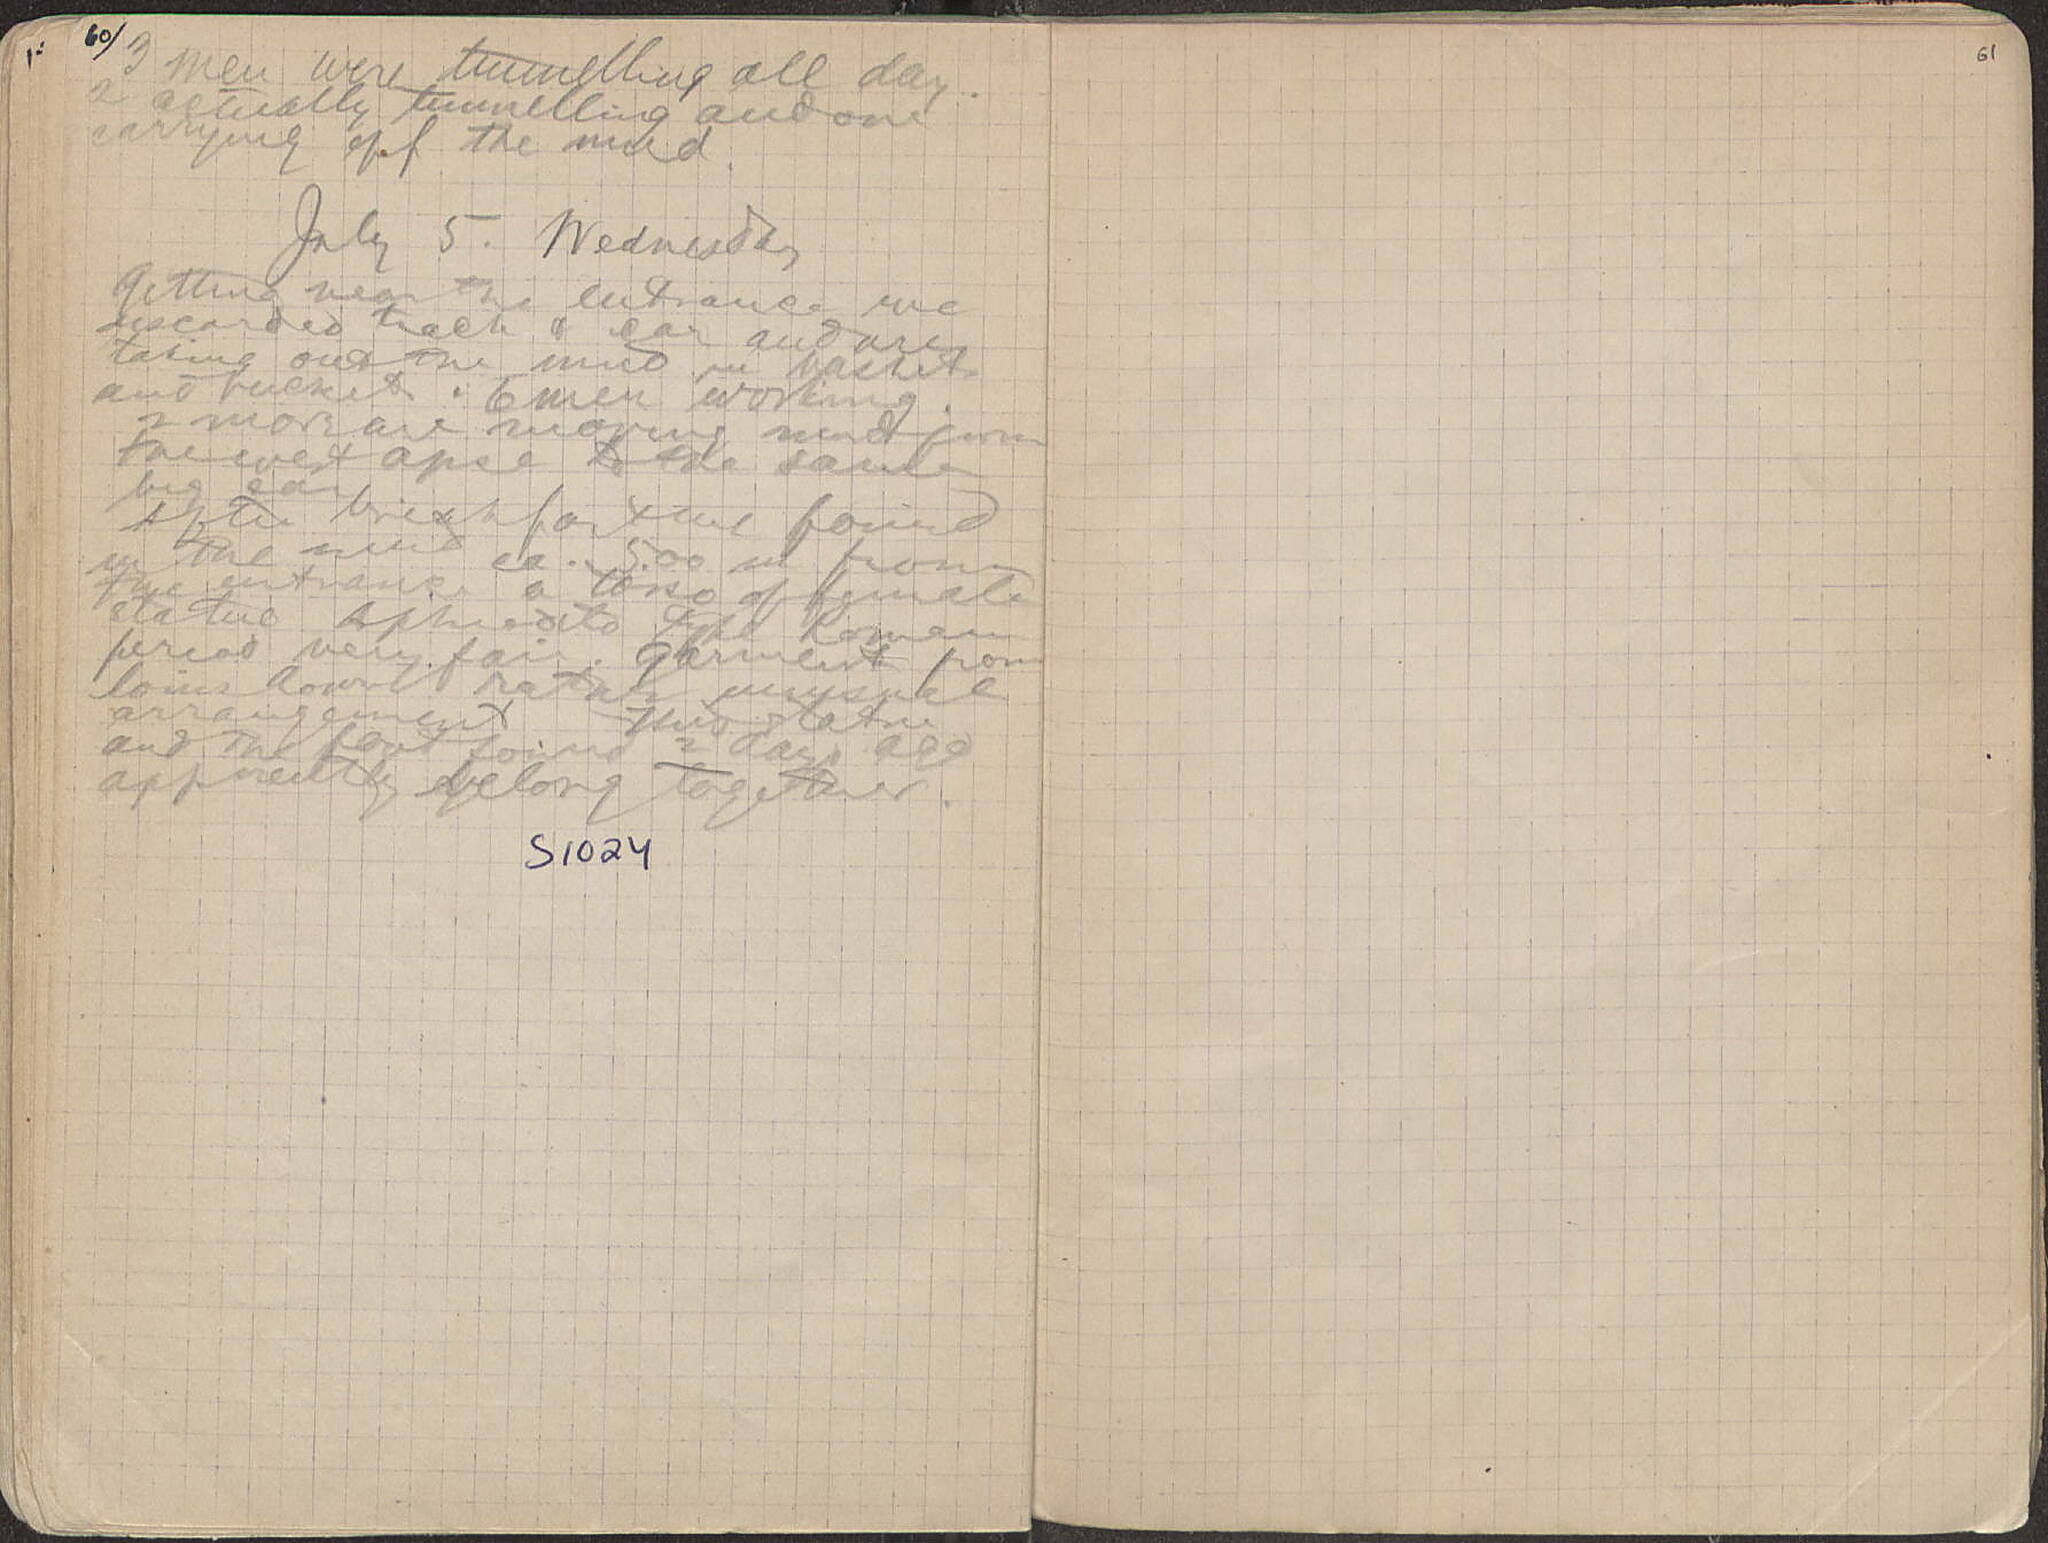 60/
3 men were tunnelling all day.
2 actually tunnelling and one
carrying off the mud.
July 5. Wednesday
Getting near the entrance we
discarded track & car and are
taking out the mud in baskets
and buckets. 6 men working.
2 more are moving mud from
the west apse to the same
big car
After breakfast we found
in the mud ca. 5.00 m from
the entrance a torso of female
statue Aphrodite type Roman
period very fair. Garment from
loins down rather unusual
arrangement This statue
and the foot found 2 days ago
apparently belong together.
S1024
61